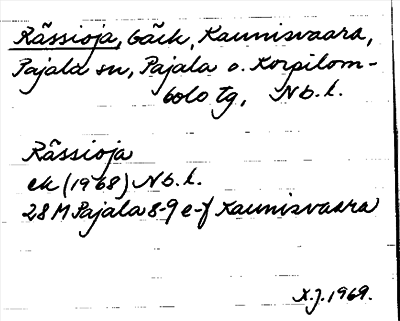 Rässioja, bäck, Kaunisvaara,
Pajala sn, Pajala o. Korpilom-
bolo tg, Nb.l.
Rässioja
ek (1968) Nb.l.
28 M Pajala 8-9 e-f Kaunisvaara
X.J. 1969.